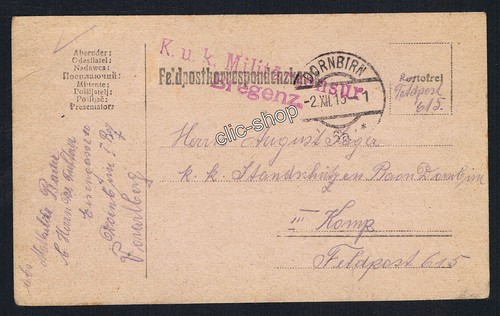 Absender:
Odesílatel:
Nadawca:
Посилаючий:
Mittente:
Pošiljatelj:
Pošiljač:
Presentator:
K. u. k. Militärzensur
Bregenz.
Feldpostkorrespondenzkarte
DORNBIRN
-2.XII.15-1
clic-shop
Portofrei
Feldpost
615.
Herrn August
k. k. Standschützen Baon Dornbirn
III Komp
Feldpost 615
Mathilde
Herrn
Eisengasse
Dornbirn
Vorarlberg